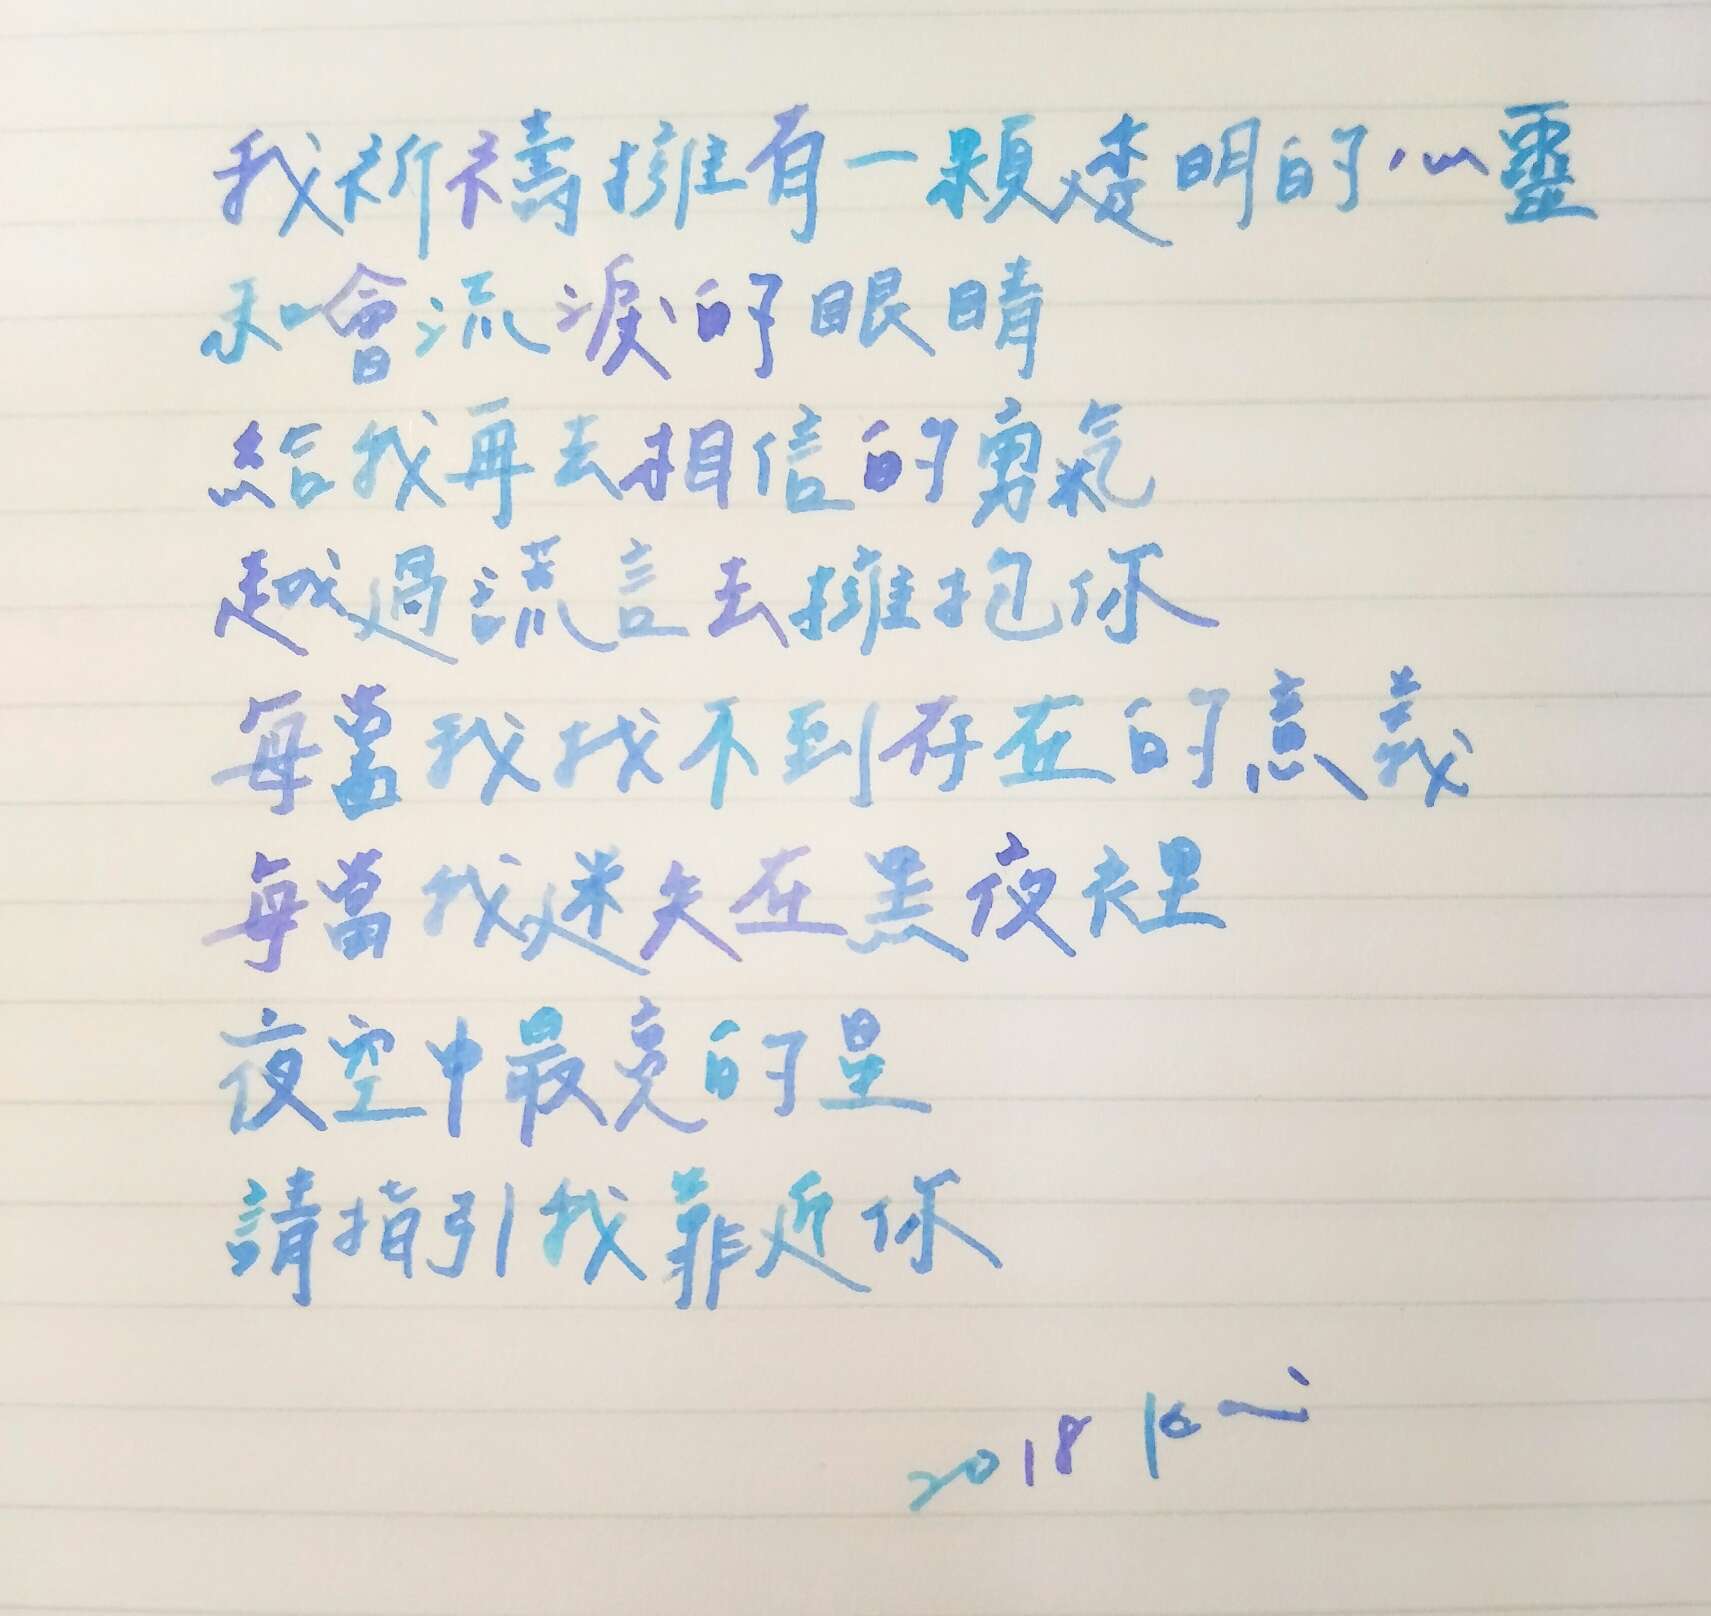 我祈禱擁有一顆透明的心靈
和會流淚的眼睛
給我再去相信的勇氣
越過謊言去擁抱你
每當我找不到存在的意義
每當我迷失在黑夜裡
夜空中最亮的星
請指引我靠近你
2018